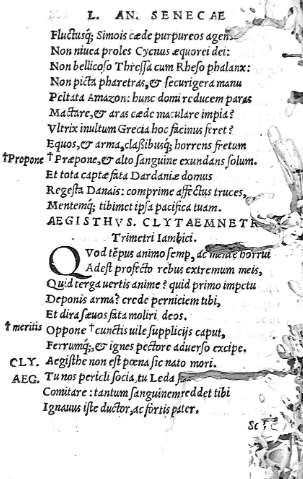 L. AN. SENECAE
Fluctusq; Simois cæde purpureos agens
Non niuea proles Cycnus æquorei dei:
Non bellicoso Thressa cum Rheso phalanx:
Non picta pharetras, & securigera manu
Peltata Amazon: hunc domi reducem paras
Mactare, & aras cæde maculare impia?
Vltrix inultum Grecia hoc facinus feret?
Equos, & arma, classibusq; horrens fretum
†Propone †Præpone, & alto sanguine exundans solum.
Et tota captæ fata Dardaniæ domus
Regesta Danais: comprime affectus truces,
Mentemq; tibimet ipsa pacifica tuam.
AEGISTHVS. CLYTAEMNETR
Trimetri Iambici.
QVod tẽpus animo semp, ac mente horrui
Adest profecto rebus extremum meis,
Quid terga uertis anime? quid primo impetu
Deponis arma? crede perniciem tibi,
Et dira sæuos fata moliri deos.
†meritis Oppone †cunctis uile supplicijs caput,
Ferrumq;, & ignes pectore aduerso excipe.
CLY. Aegisthe non est pœna sic nato mori.
AEG. Tu nos pericli socia, tu Leda
Comitare: tantum sanguinem reddet tibi
Ignauus iste ductor, ac fortis pater.